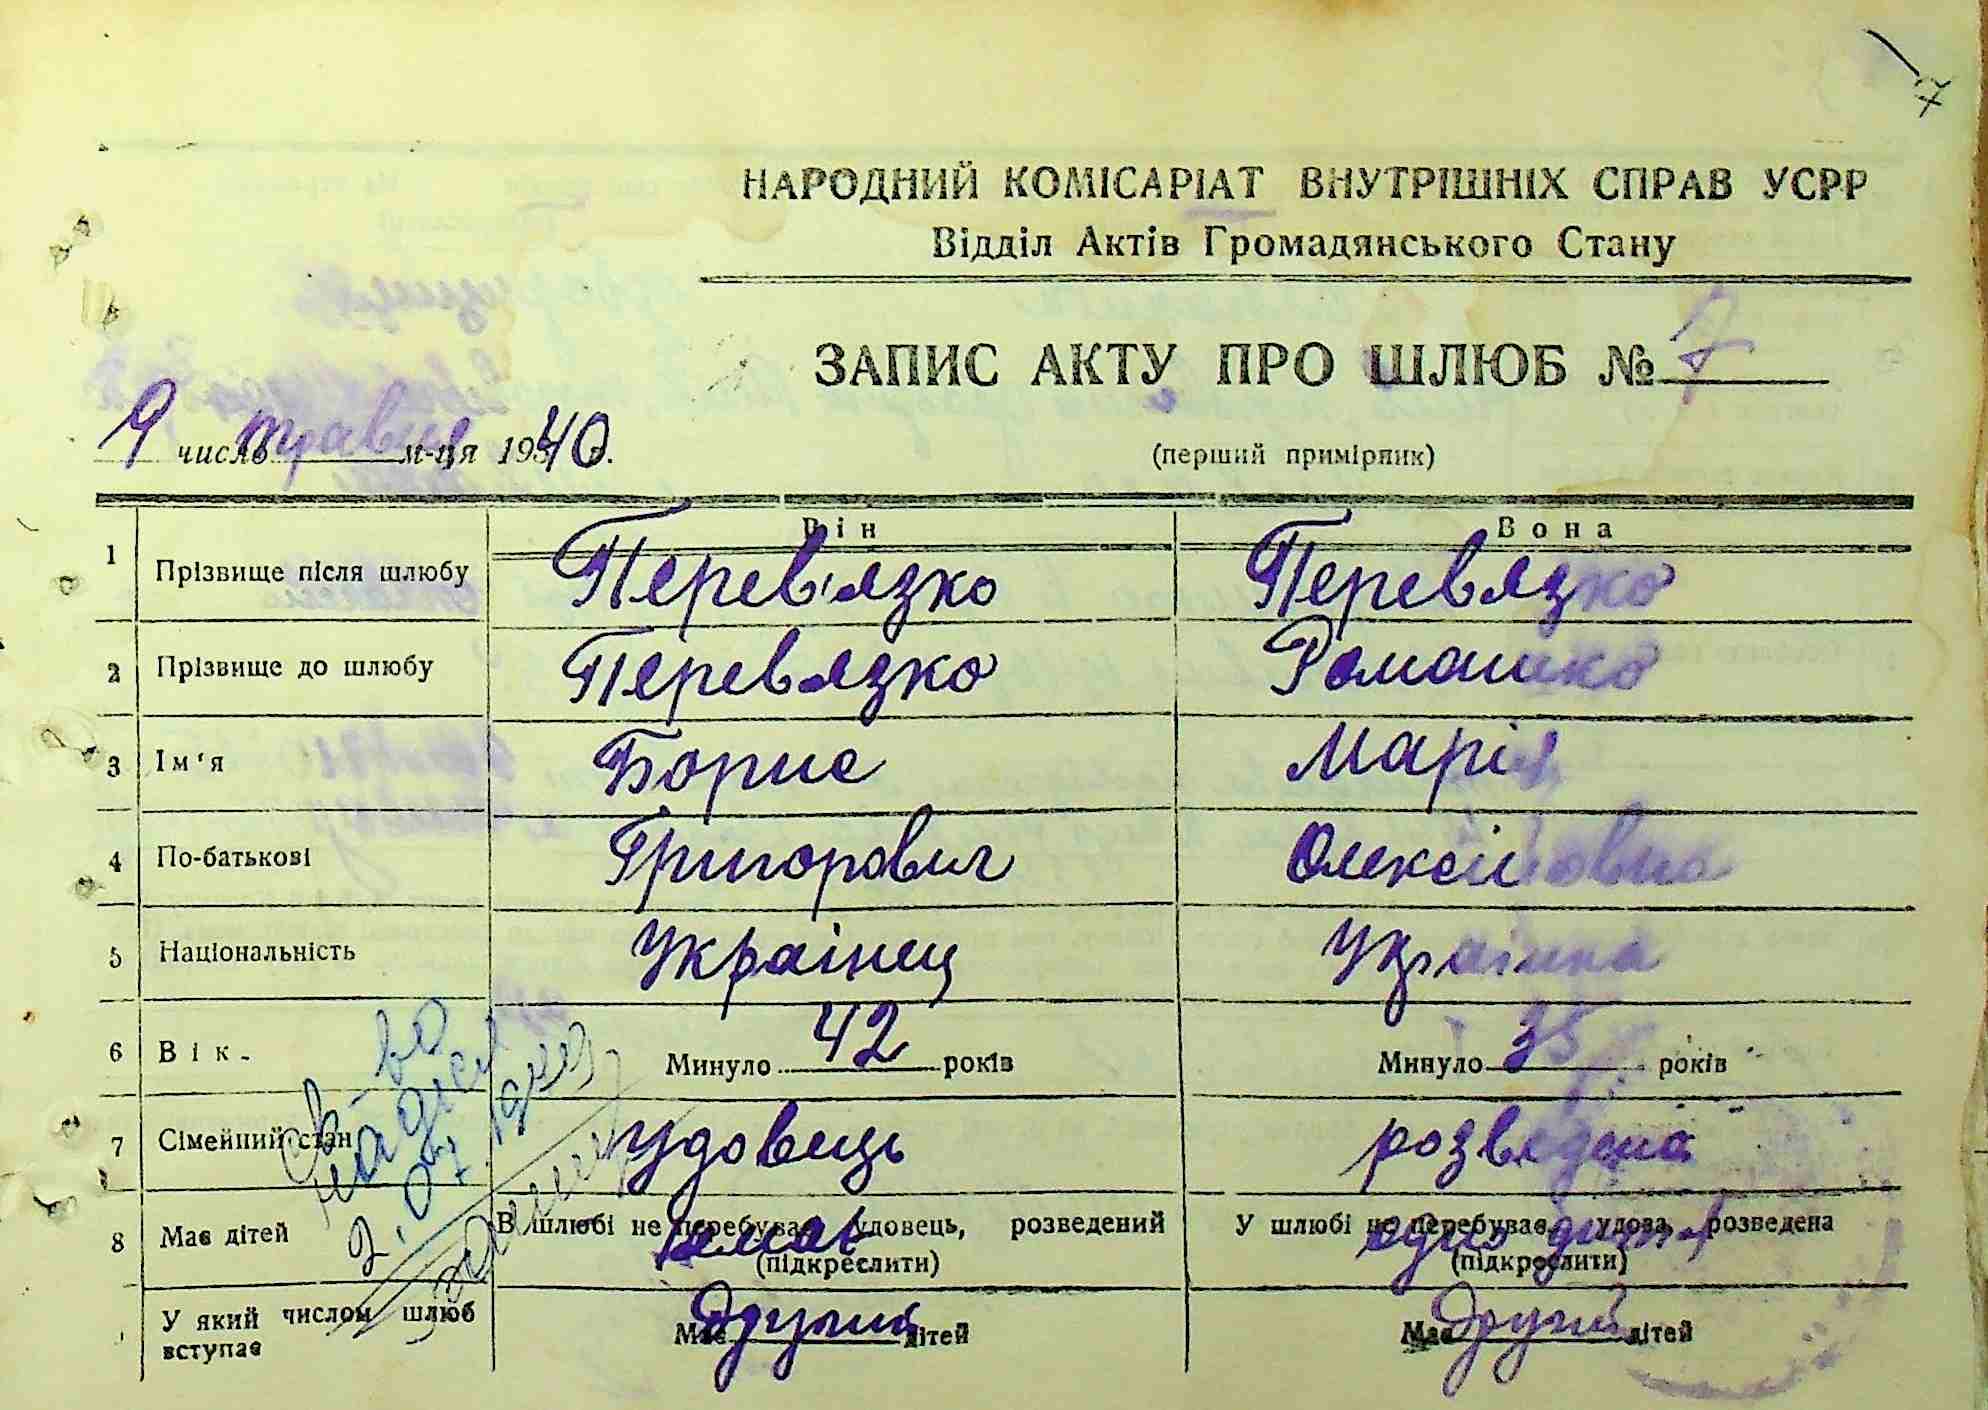 7
НАРОДНИЙ КОМІСАРІАТ ВНУТРІШНІХ СПРАВ УСРР
Відділ Актів Громадянського Стану
ЗАПИС АКТУ ПРО ШЛЮБ № 7
9 число травня м-ця 1940 р.
(перший примірник)
Він Вона
1 Прізвище після шлюбу Перев'язко Перевязко
2 Прізвище до шлюбу Перевязко Ромашко
3 Ім'я Борис Марія
4 По-батькові Григорович Олексіївна
5 Національність Українец Українка
6 Вік. Минуло 42 років Минуло 35 років
7 Сімейний стан удовець розведена
8 Має дітей В шлюбі не перебував, удовець, розведений У шлюбі не перебуває, удова, розведена
немає одно дитя
(підкреслити) (підкреслити)
У який числом шлюб вступає Має Другий дітей Має Другий дітей